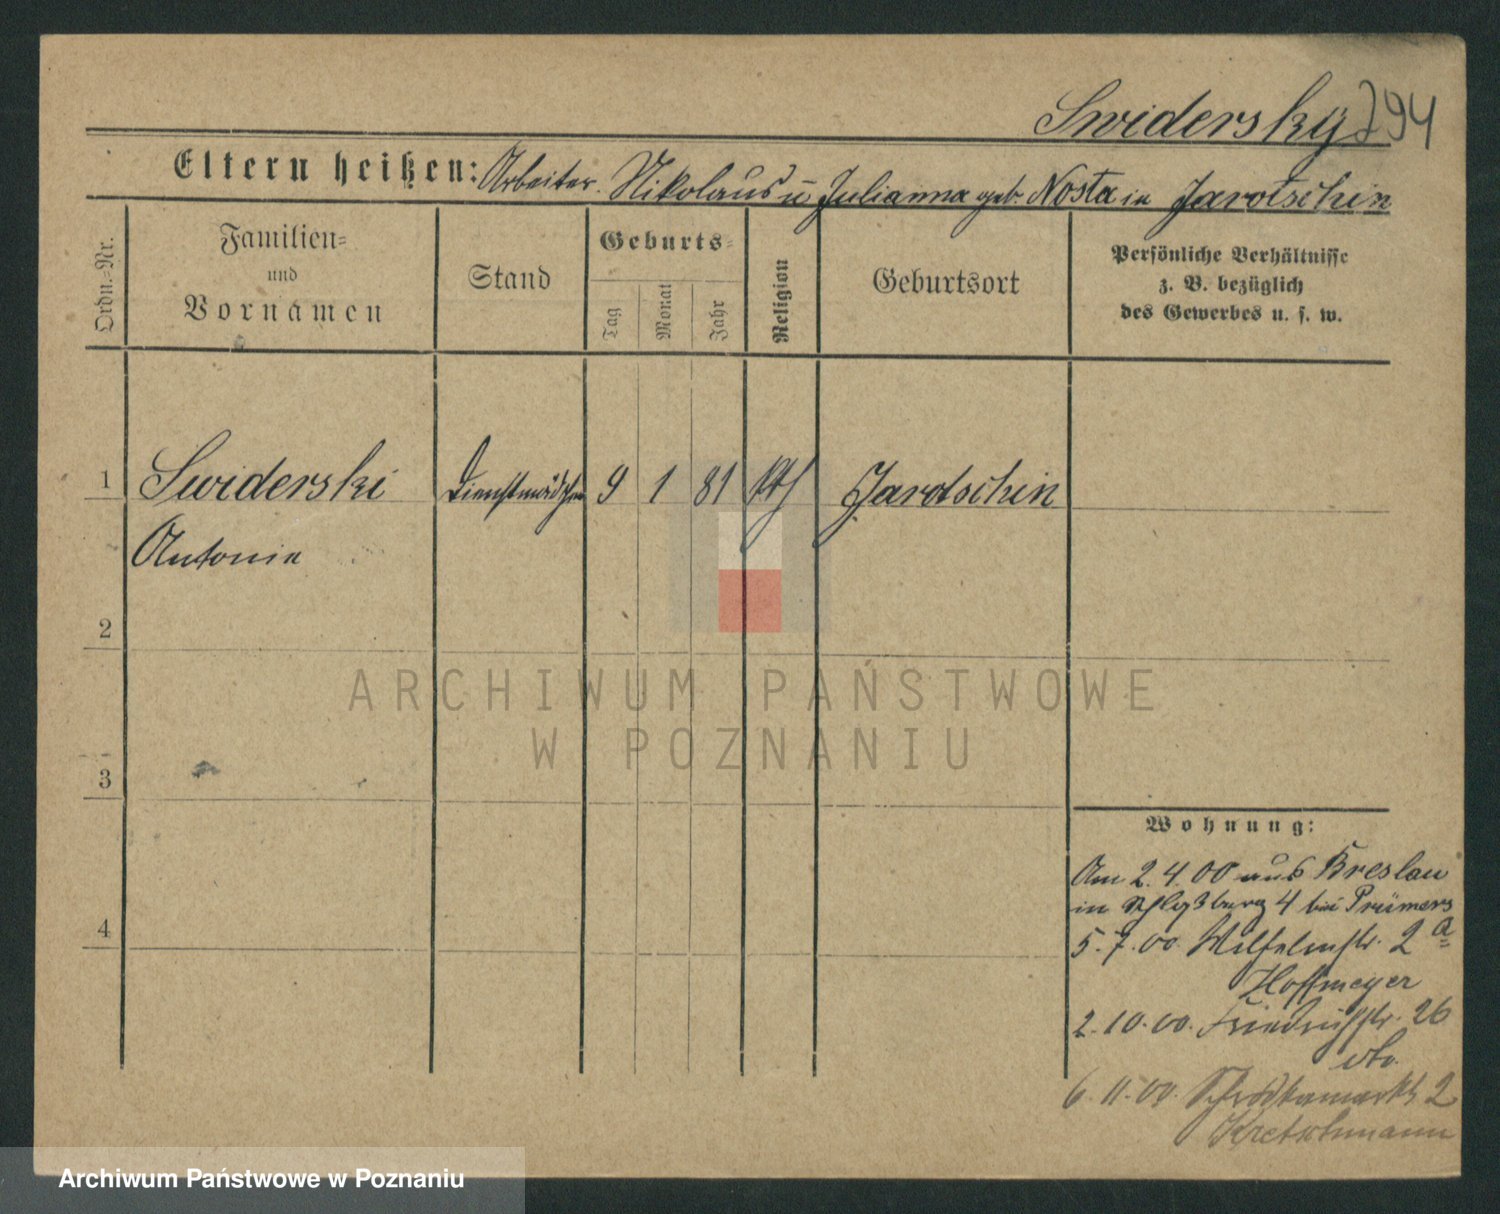 Swidersky 294
Eltern heißen: Arbeiter Nikolaus u Julianna geb. Nosta in Jarotschin
Ordn.-Nr.
Familien-
und
Vornamen
Stand
Geburts-
Tag
Monat
Jahr
Religion
Geburtsort
Persönliche Verhältnisse
z. B. bezüglich
des Gewerbes u. s. w.
1 Swiderski Dienstmädchen 9 1 81 kth Jarotschin
Antonie
2
3
4
ARCHIWUM PAŃSTWOWE
W POZNANIU
Wohnung:
Am 2.4.00 aus Breslau
in Schloßberg 4 bei Prümers
5.7.00 Wilhelmstr. 2 a
Hoffmeyer
2.10.00. Friedrichstr. 26
6.11.00. Schrodkamarkt 2
Kretschmann
Archiwum Państwowe w Poznaniu